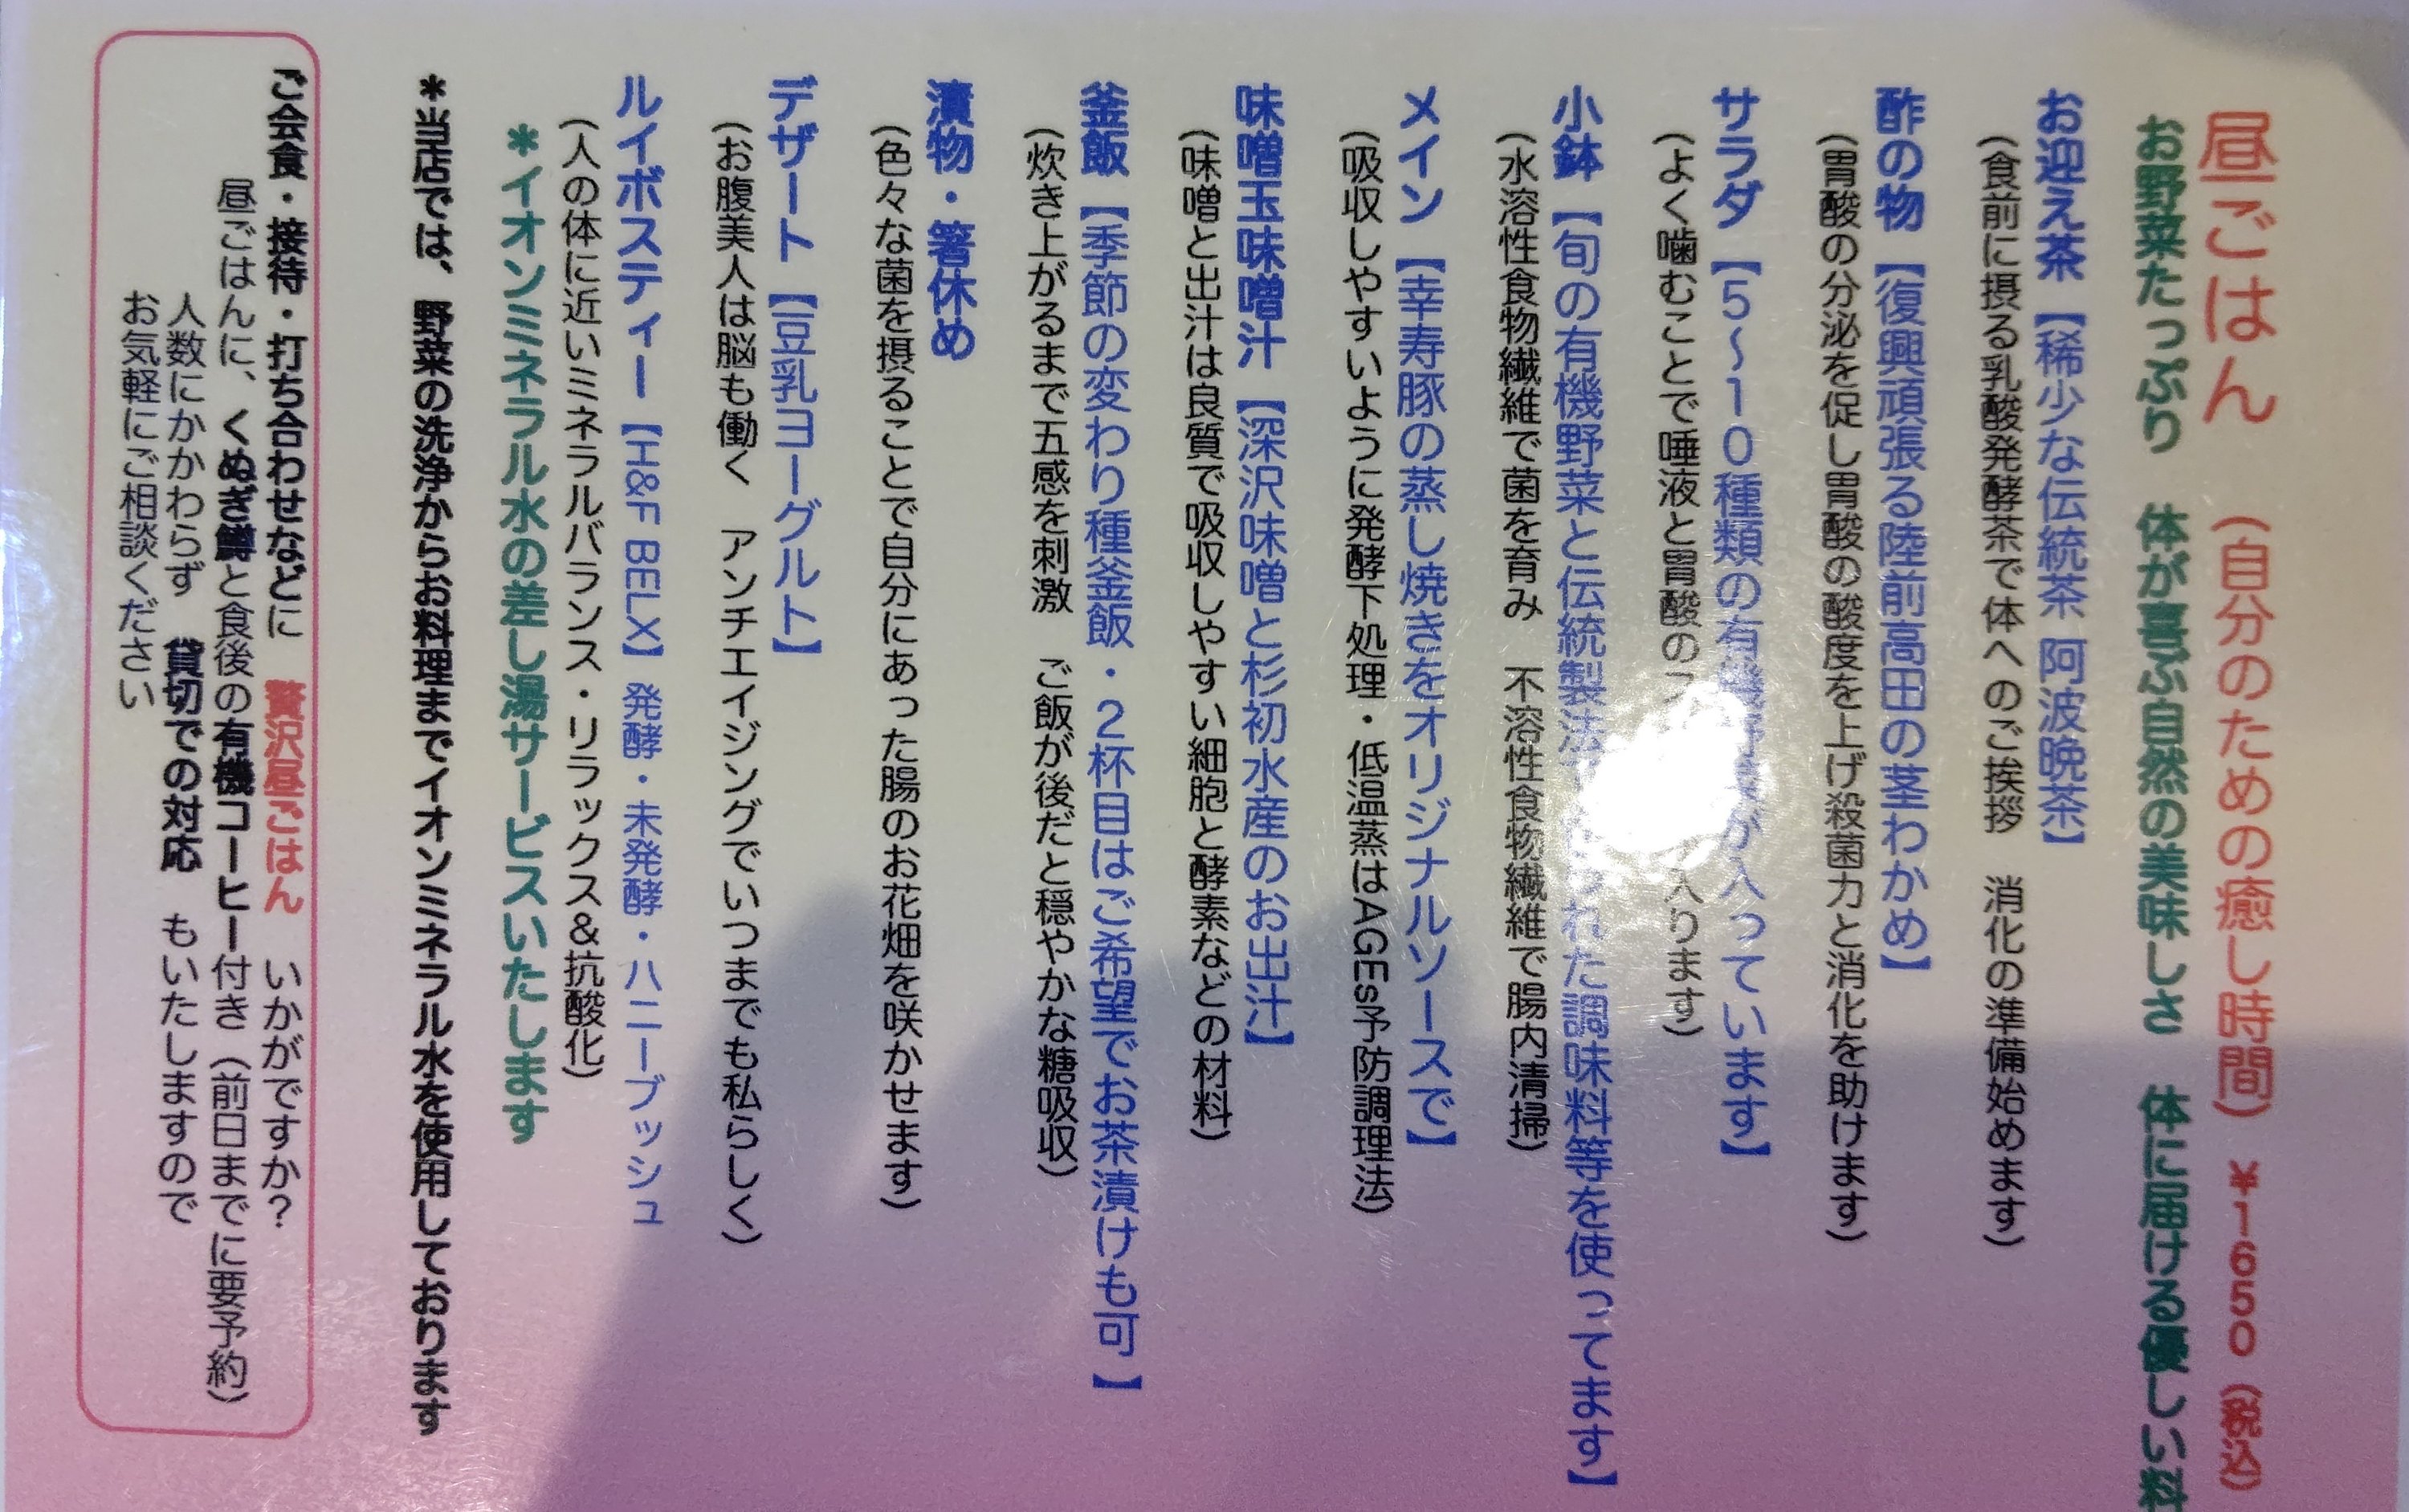 昼ごはん （自分のための癒し時間） ￥1650（税込）
お野菜たっぷり 体が喜ぶ自然の美味しさ 体に届ける優しい料
お迎え茶【稀少な伝統茶 阿波晩茶】
（食前に摂る乳酸発酵茶で体へのご挨拶 消化の準備始めます）
酢の物【復興頑張る陸前高田の茎わかめ】
（胃酸の分泌を促し胃酸の酸度を上げ殺菌力と消化を助けます）
サラダ【5～10種類の有機野菜が入っています】
（よく噛むことで唾液と胃酸のス 入ります）
小鉢【旬の有機野菜と伝統製法で れた調味料等を使ってます】
（水溶性食物繊維で菌を育み 不溶性食物繊維で腸内清掃）
メイン【幸寿豚の蒸し焼きをオリジナルソースで】
（吸収しやすいように発酵下処理・低温蒸はAGEs予防調理法）
味噌玉味噌汁【深沢味噌と杉初水産のお出汁】
（味噌と出汁は良質で吸収しやすい細胞と酵素などの材料）
釜飯【季節の変わり種釜飯・2杯目はご希望でお茶漬けも可】
（炊き上がるまで五感を刺激 ご飯が後だと穏やかな糖吸収）
漬物・箸休め
（色々な菌を摂ることで自分にあった腸のお花畑を咲かせます）
デザート【豆乳ヨーグルト】
（お腹美人は脳も働く アンチエイジングでいつまでも私らしく）
ルイボスティー【H&F BELX】発酵・未発酵・ハニーブッシュ
（人の体に近いミネラルバランス・リラックス&抗酸化）
＊イオンミネラル水の差し湯サービスいたします
＊当店では、野菜の洗浄からお料理までイオンミネラル水を使用しております
ご会食・接待・打ち合わせなどに 贅沢昼ごはん いかがですか？
昼ごはんに、くぬぎ鱒と食後の有機コーヒー付き（前日までに要予約）
人数にかかわらず 貸切での対応 もいたしますので
お気軽にご相談ください